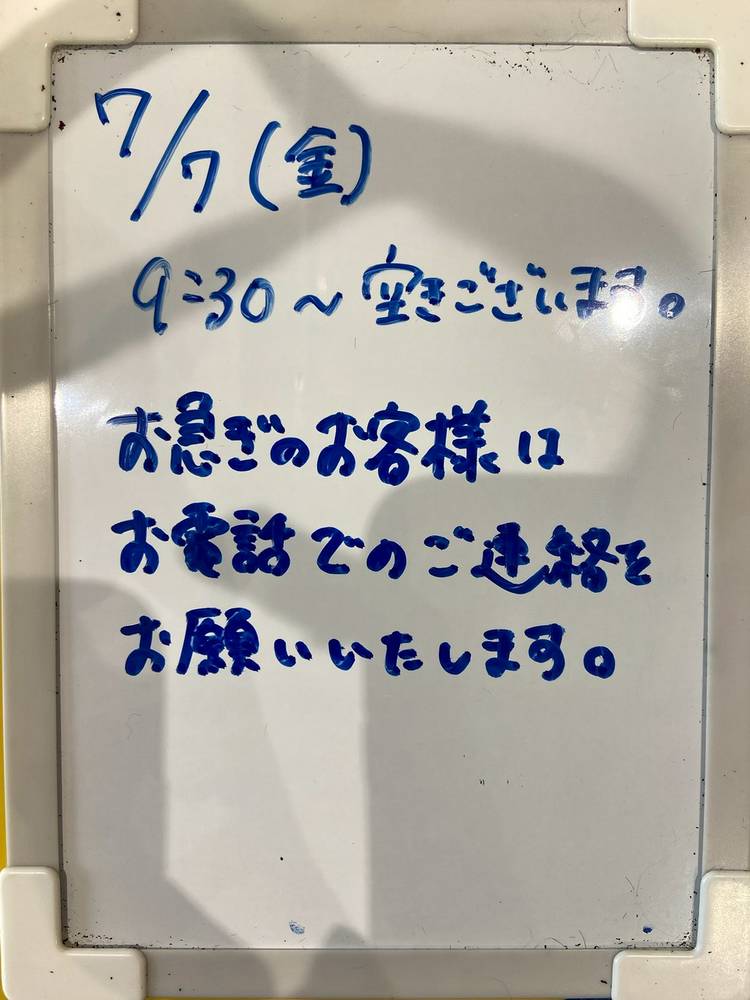 7/7(金)
9:30～空きございます。
お急ぎのお客様は
お電話でのご連絡を
お願いいたします。